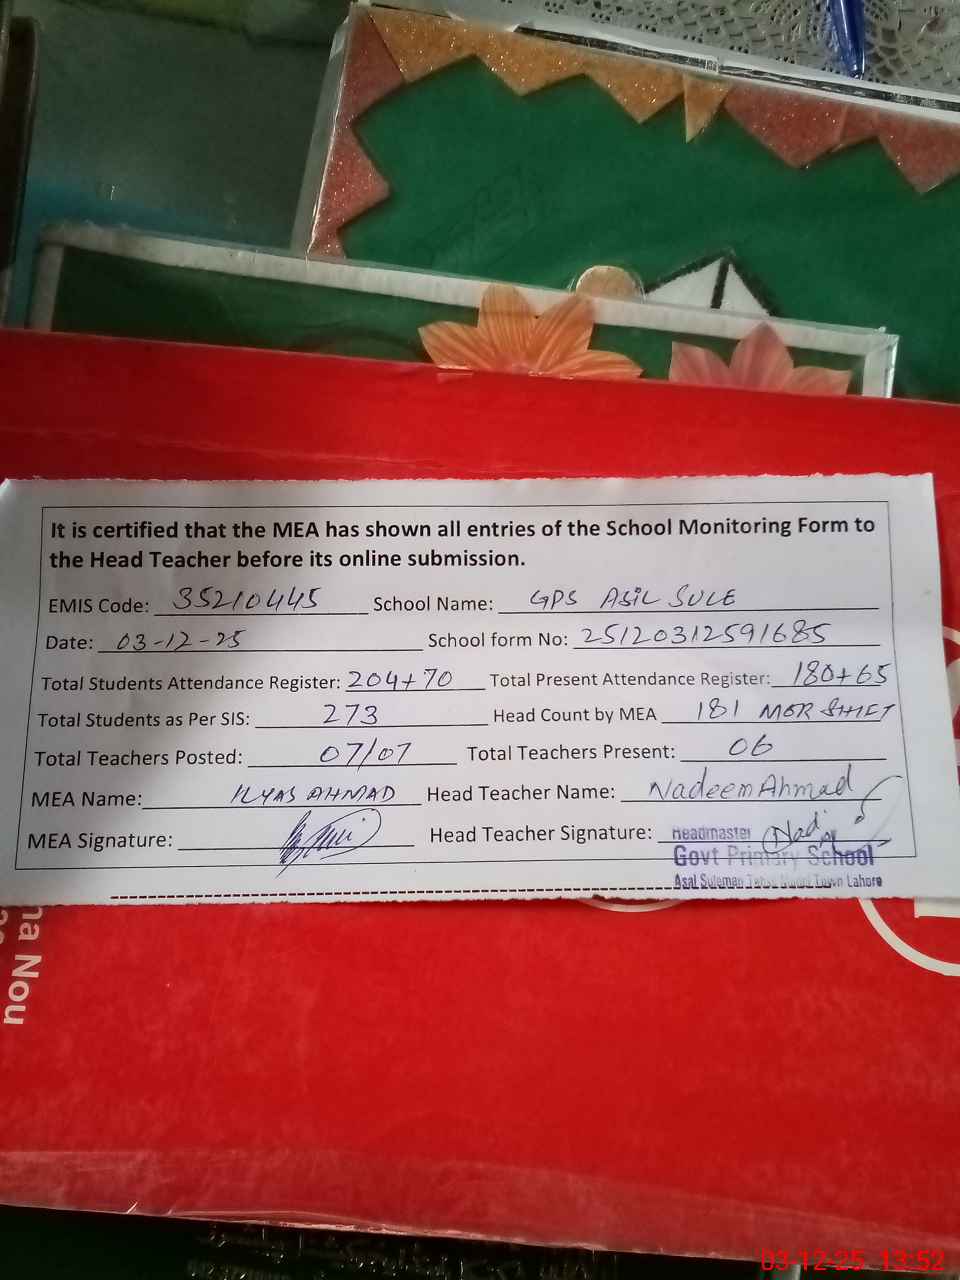 It is certified that the MEA has shown all entries of the School Monitoring Form to
the Head Teacher before its online submission.
EMIS Code: 35210445 School Name: GPS ASIL SULE
Date: 03-12-25 School form No: 25120312591685
Total Students Attendance Register: 204+70 Total Present Attendance Register: 180+65
Total Students as Per SIS: 273 Head Count by MEA 181 MOR SHIFT
Total Teachers Posted: 07/07 Total Teachers Present: 06
MEA Name: ILYAS AHMAD Head Teacher Name: Nadeem Ahmad
MEA Signature: Head Teacher Signature:
Headmaster
Govt Primary School
Asal Suleman Town Lahore
na Nou
03-12-25 13:52